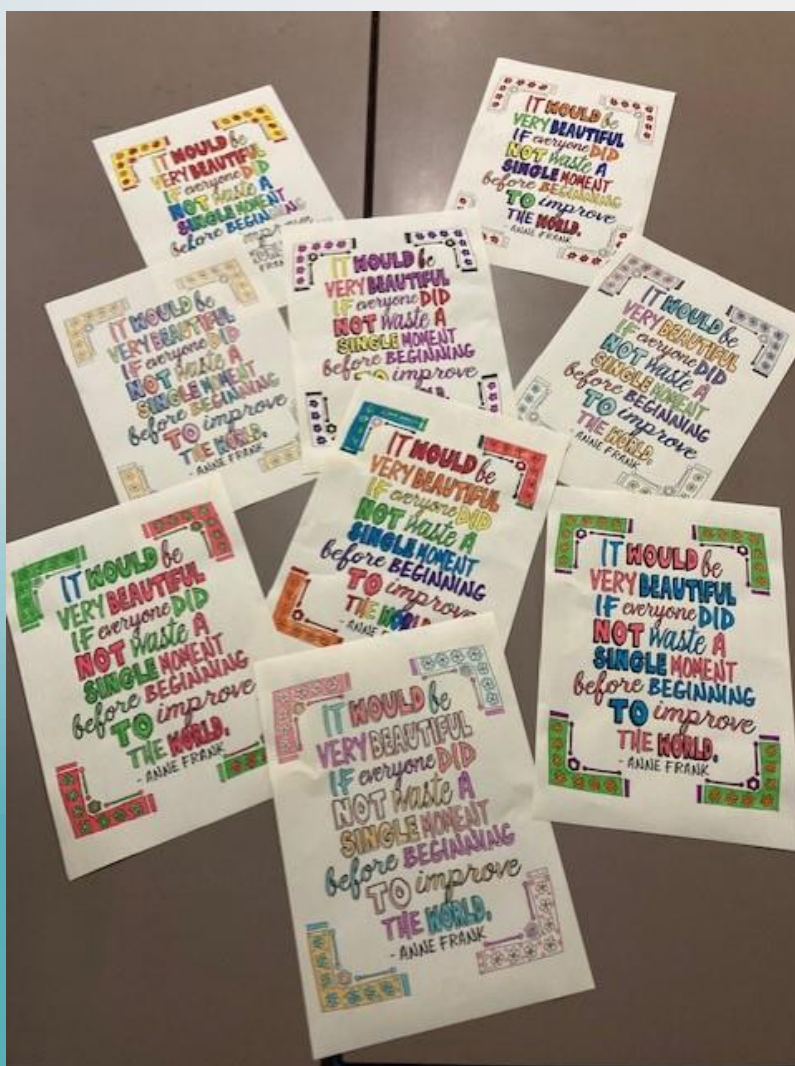 IT WOULD be
VERY BEAUTIFUL
IF everyone DID
NOT waste A
SINGLE MOMENT
before BEGINNING
improve
IT WOULD be
VERY BEAUTIFUL
IF everyone DID
NOT waste A
SINGLE MOMENT
before BEGINNING
TO improve
THE WORLD.
- ANNE FRANK
IT WOULD be
VERY BEAUTIFUL
IF everyone DID
NOT waste A
SINGLE MOMENT
before BEGINNING
TO improve
THE WORLD.
- ANNE FRANK
IT WOULD be
VERY BEAUTIFUL
IF everyone DID
NOT waste A
SINGLE MOMENT
before BEGINNING
TO improve
IT WOULD be
VERY BEAUTIFUL
IF everyone DID
NOT waste A
SINGLE MOMENT
before BEGINNING
TO improve
THE WORLD.
- ANNE FRANK
IT WOULD be
VERY BEAUTIFUL
IF everyone DID
NOT waste A
SINGLE MOMENT
before BEGINNING
TO improve
THE WORLD
- ANNE
IT WOULD be
VERY BEAUTIFUL
IF everyone DID
NOT waste A
SINGLE MOMENT
before BEGINNING
TO improve
THE WORLD.
- ANNE FRANK
IT WOULD be
VERY BEAUTIFUL
IF everyone DID
NOT waste A
SINGLE MOMENT
before BEGINNING
TO improve
THE WORLD.
- ANNE FRANK
IT WOULD be
VERY BEAUTIFUL
IF everyone DID
NOT waste A
SINGLE MOMENT
before BEGINNING
TO improve
THE WORLD.
- ANNE FRANK